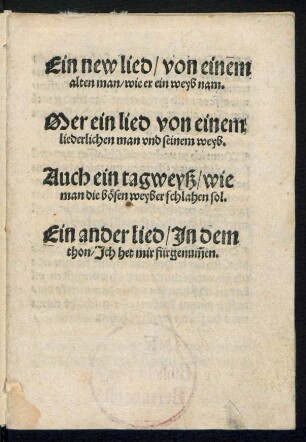 Ein new lied/ von einem
alten man/ wie er ein weyß nam.
Mer ein lied von einem
liederlichen man vnd seinem weyß.
Auch ein tagweyß/ wie
man die bösen weyber schlahen sol.
Ein ander lied/ In dem
thon/ Ich het mir fürgenum̄en.